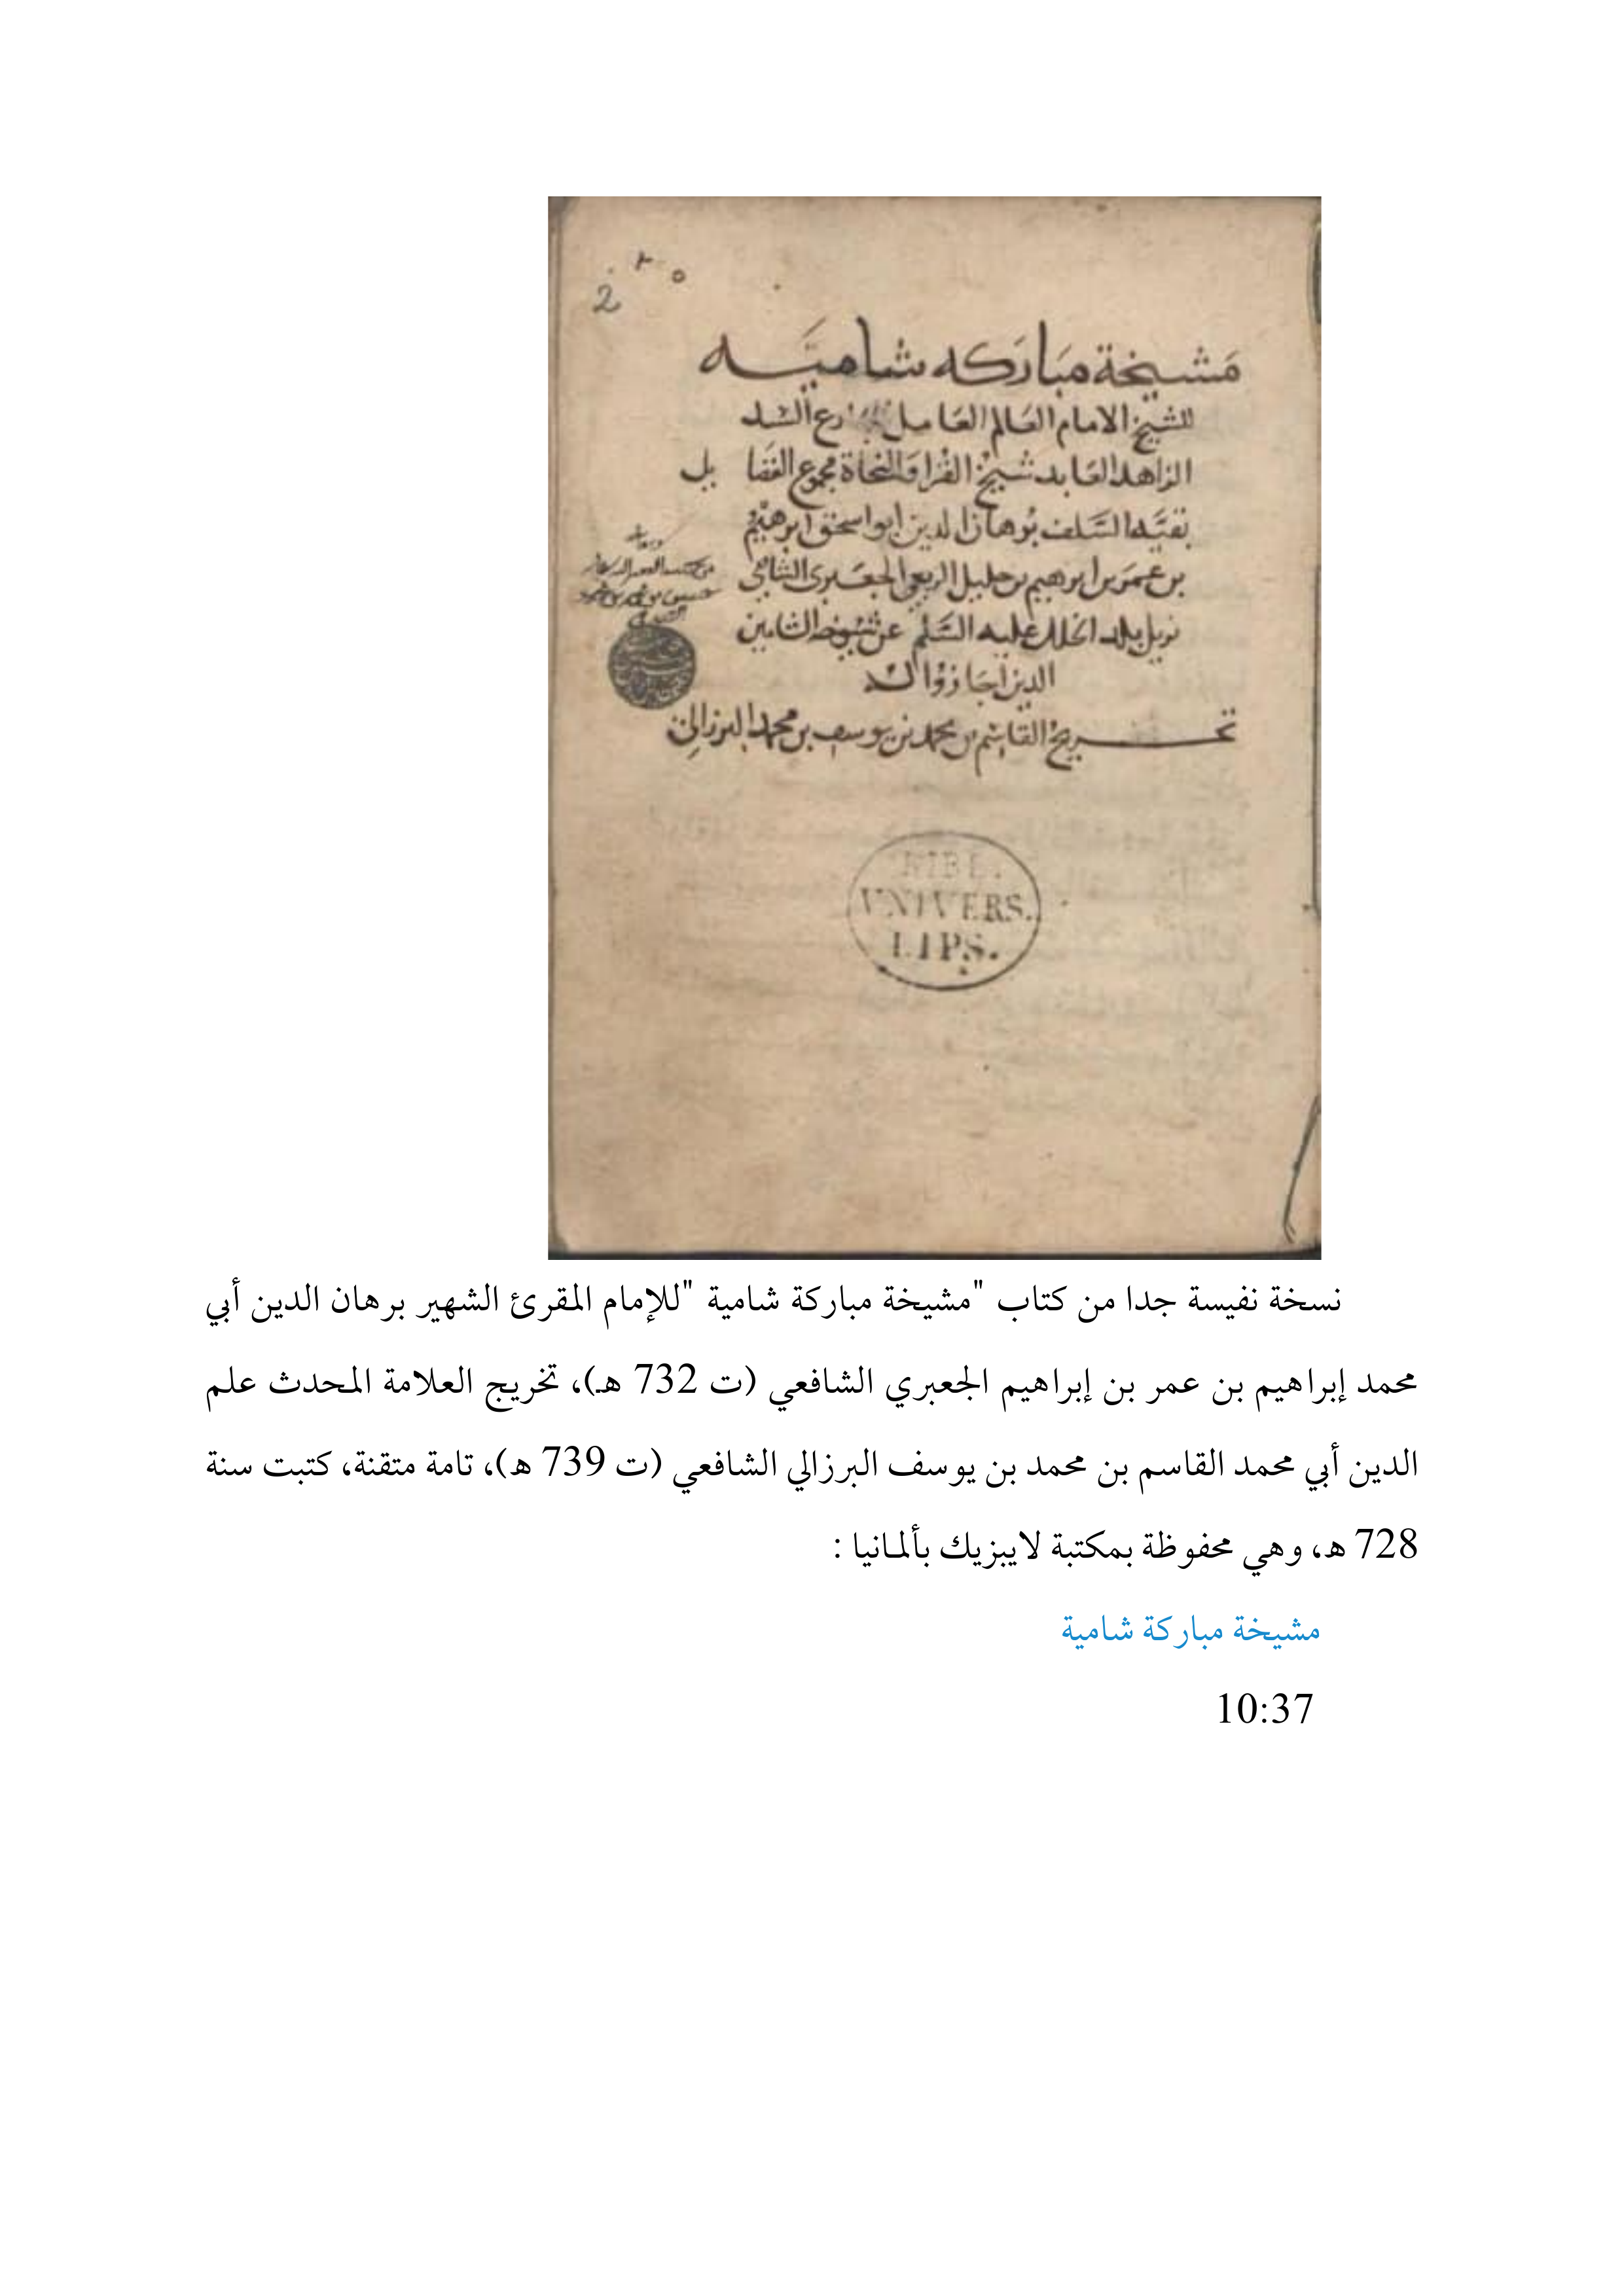 مشيخة مباركه شاميه
للشيخ الامام العالم العامل
الزاهد العابد شيخ القرا والنحاة مجموع الفضايل
بقية السلف برهان الدين ابو اسحق ابرهيم
بن عمر بن ابرهيم بن خليل الربعي الجعبري الشافعي
نزيل بلد الخليل عليه السلم عن شيوخه الشاميين
الذين اجازوا له
تخريج القاسم بن محمد بن يوسف بن محمد البرزالي
BIBL.
VNIVERS.
LIPS.
نسخة نفيسة جدا من كتاب "مشيخة مباركة شامية "للإمام المقرئ الشهير برهان الدين أبي
محمد إبراهيم بن عمر بن إبراهيم الجعبري الشافعي (ت 732 هـ)، تخريج العلامة المحدث علم
الدين أبي محمد القاسم بن محمد بن يوسف البرزالي الشافعي (ت 739 ه)، تامة متقنة، كتبت سنة
728 ه، وهي محفوظة بمكتبة لايبزيك بألمانيا :
مشيخة مباركة شامية
10:37